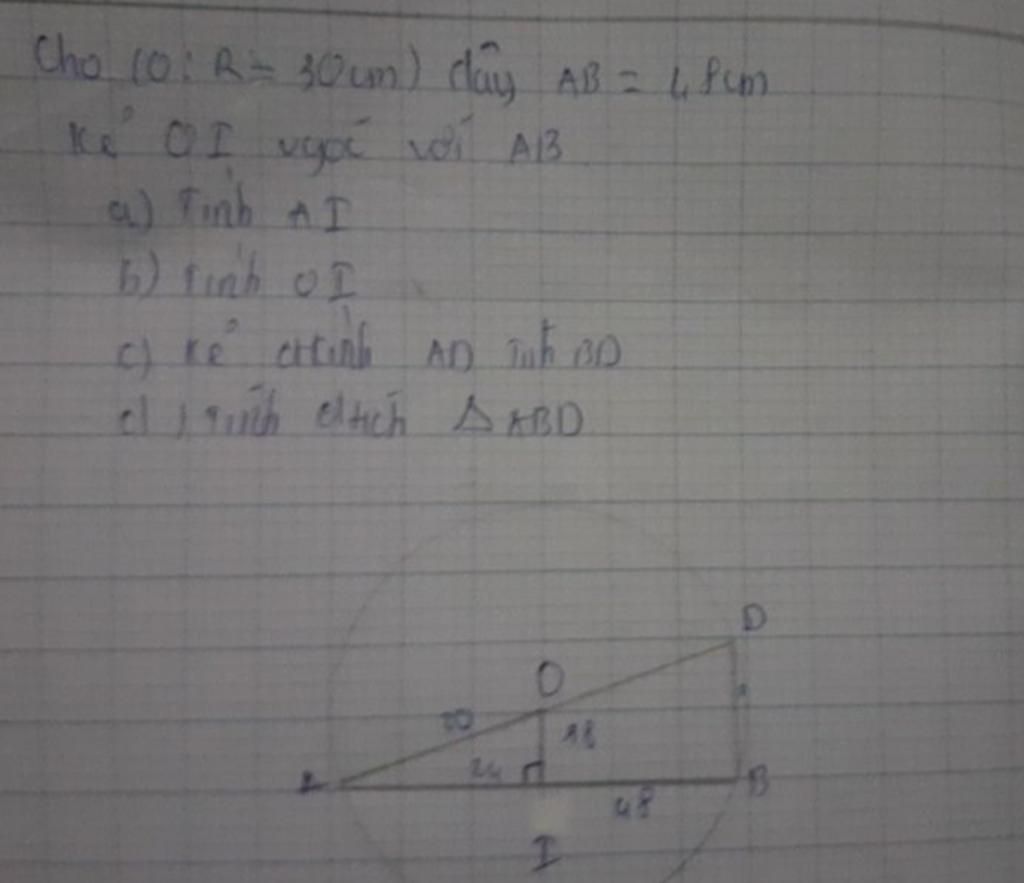 Cho (O; R = 30cm) dây AB = 48cm
Kẻ OI vgóc với AB
a) Tính AI
b) tính OI
c) Kẻ đkính AD tính BD
d) tính dtích Δ ABD
D
O
30
18
24
A
B
48
I